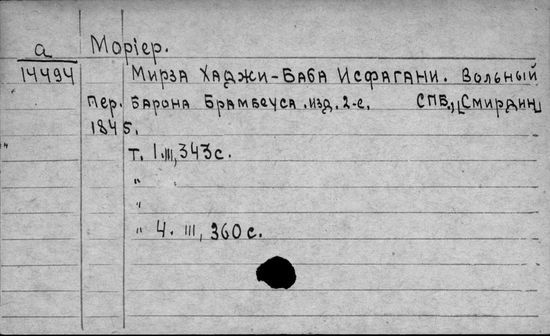 а
14494
Моріер.
Мирза Хаджи-Баба Исфагани. Вольный
пер. Барона Брамбеуса. изд. 2-е. СПБ., [Смирдин]
1845.
т. 1. III, 343 с.
" :
"
" 4. III, 360 с.